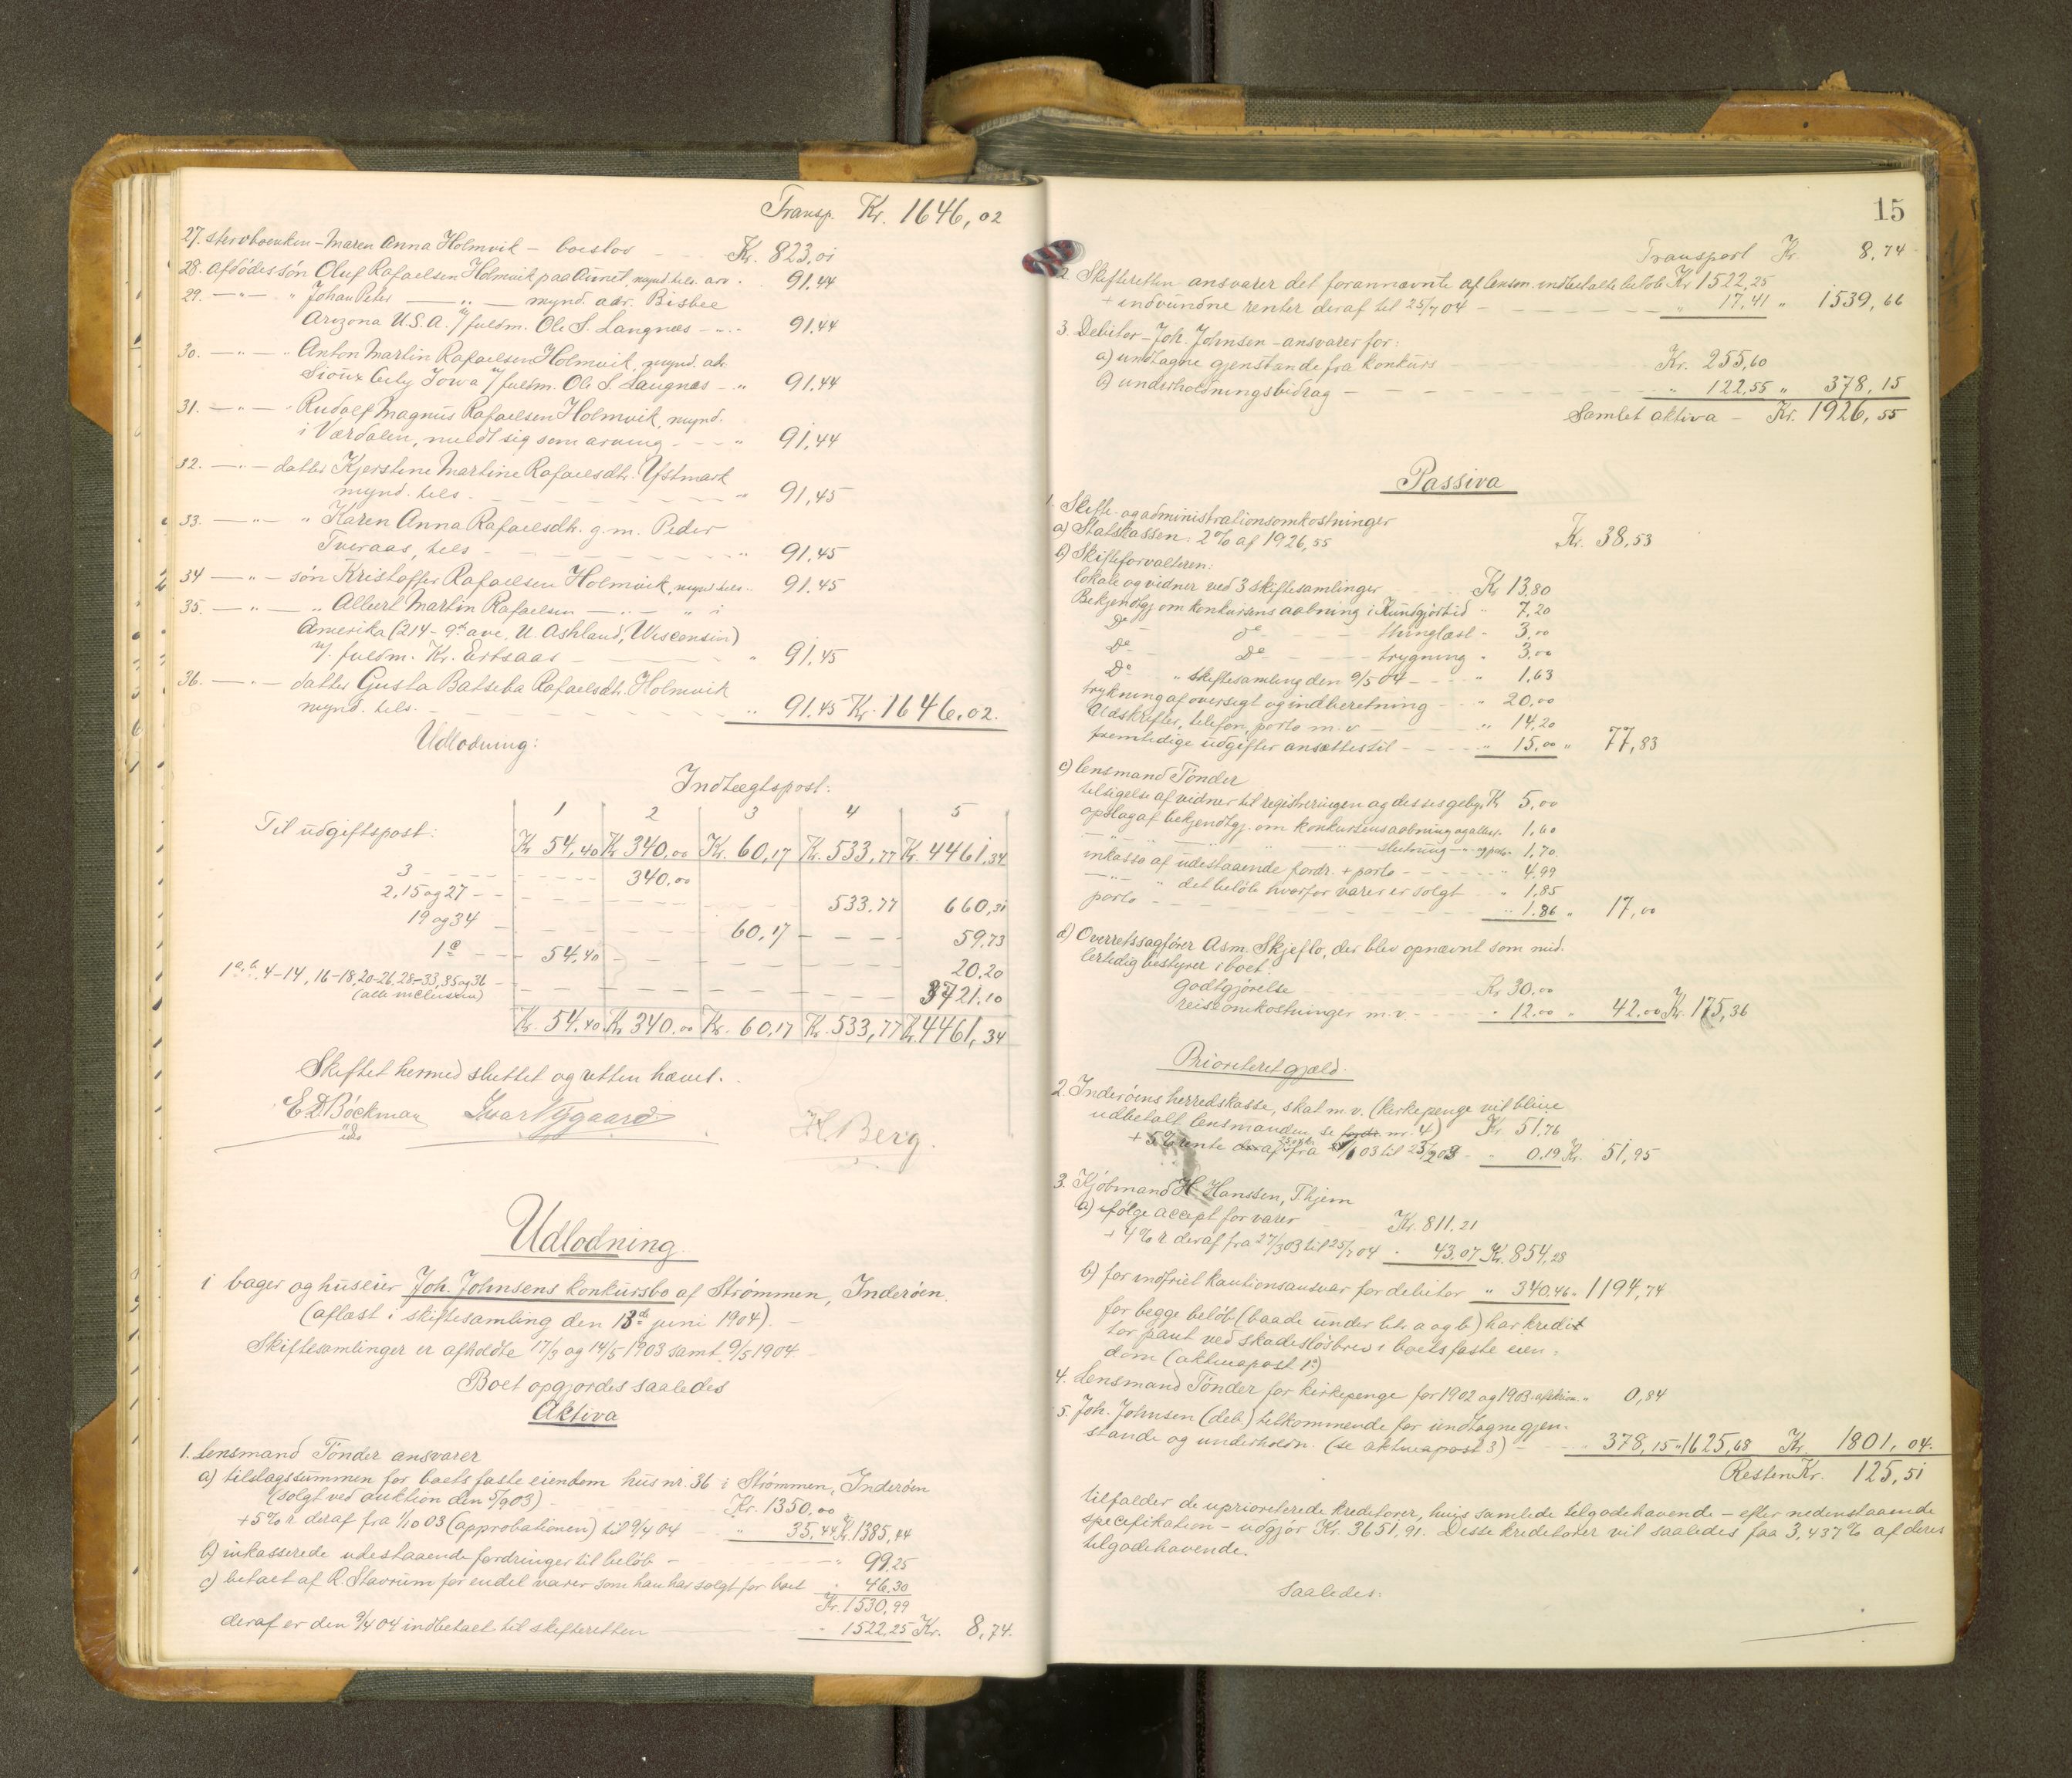 Transp. Kr. 1646,02
27. stervboenken - Maren Anna Holmvik - boeslod Kr. 823,01
28. afdødes søn Oluf Rafaelsen Holmvik paa Aunet, mynd. tels. arv. 91,44
29. — " — " Johan Peter — " — mynd. adr. Bisbee
Arizona U.S.A. v/ fuldm. Ole S. Langnæs - " 91,44
30. — " — " Anton Martin Rafaelsen Holmvik, mynd. adr.
Sioux City Iowa v/ fuldm. Ole S Langnæs - " 91,44
31. — " — " Rudolf Magnus Rafaelsen Holmvik, mynd.
i Værdalen, meldt sig som arving - " 91,44
32. — " — datter Kjerstine Martine Rafaelsdtr. Ystmark
mynd. tels. " 91,45
33. — " — " Karen Anna Rafaelsdtr. g.m. Peder
Tveraas, tels - " 91,45
34 — " — søn Kristoffer Rafaelsen Holmvik, mynd. tels. " 91,45
35. — " — " Albert Martin Rafaelsen — " — " i
Amerika (214 - 9th ave. U. Ashland, Wisconsin)
v/. fuldm. Kr. Ertsaas - " 91,45
36. — " — datter Gusta Batseba Rafaelsdtr. Holmvik
mynd. tels. - " 91,45 Kr. 1646,02.
Udlodning:
Indtægtspost:
Til udgiftspost: 1 2 3 4 5
Kr. 54,40 Kr. 340,00 Kr. 60,17 Kr. 533,77 Kr. 4461,34
3 340,00
2, 15 og 27 533,77 660,31
19 og 34 60,17 59,73
1 a 54,40 20,20
1 a, b. 4-14, 16-18, 20-26, 28-33, 35 og 36 3721,10
(alle inclusive)
Kr. 54,40 Kr. 340,00 Kr. 60,17 Kr. 533,77 Kr. 4461,34
Skiftet hermed sluttet og retten hævet.
E.D. Bøckman Ivar Nygaard H. Berg.
Udlodning
i bager og huseier Joh. Johnsens konkursbo af Strømmen, Inderøen.
(aflæst i skiftesamling den 13de juni 1904).
Skiftesamlinger er afholdte 17/3 og 14/5 1903 samt 9/5 1904.
Boet opgjordes saaledes
Aktiva
1. Lensmand Tønder ansvarer
a) tilslagssummen for boets faste eiendom hus nr. 36 i Strømmen, Inderøen
(solgt ved auktion den 5/9 03) Kr. 1350,00
+ 5% r. deraf fra 1/10 03 (approbationen) til 9/4 04 " 35,44 Kr. 1385,44
b) inkasserede udestaaende fordringer til beløb - " 99,25
c) betalt af R. Stavrum for endel varer som han har solgt for boet " 46,30
Kr. 1530,99
deraf er den 9/4 04 indbetalt til skifteretten " 1522,25 Kr. 8,74.
15
Transport Kr. 8,74
2. Skifteretten ansvarer det forannævnte af lensm. indbetalte beløb Kr 1522,25
+ indvundne renter deraf til 25/7 04 " 17,41 " 1539,66
3. Debitor - Joh. Johnsen - ansvarer for:
a) undtagne gjenstande fra konkurs Kr. 255,60
b) underholdningsbidrag " 122,55 " 378,15
Samlet aktiva - Kr. 1926,55
Passiva
1. Skifte- og administrationsomkostninger
a) Statskassen: 2% af 1926,55 Kr. 38,53
b) Skifteforvalteren:
lokale og vidner ved 3 skiftesamlinger Kr 13,80
Bekjendtgj. om konkursens aabning i Kundgjørtid " 7,20
Do do thinglæst " 3,00
Do Do trygning " 3,00
Do " skiftesamling den 9/5 04 " 1,63
trykning af oversigt og indberetning " 20,00
Udskrifter, telefon, porto m.v. " 14,20
fremtidige udgifter ansættes til " 15,00 " 77,83
c) lensmand Tønder
tilsigelse af vidner til registreringen og disses gebyr Kr 5,00
opslag af bekjendtgj. om konkursens aabning og attest " 1,60
— " — slutning — " — 1,70
inkasso af udestaaende fordr. + porto " 4,99
— " — " det beløb hvorfor varer er solgt " 1,85
porto " 1,86 " 17,00
d) Overretssagfører Asm. Skjeflo, der blev opnævnt som mid-
lertidig bestyrer i boet:
godtgjørelse Kr 30,00
reiseomkostninger m.v. " 12,00 " 42,00 Kr. 175,36
Prioriteret gjæld.
2. Inderøens herredskasse, skat m.v. (kirkepenge vil blive
udbetalt lensmanden, se fordr. nr. 4) Kr 51,76
+ 5% rente deraf fra 03 til 03 " 0,19 Kr. 51,95
3. Kjøbmand H Hanssen, Thjem
a) ifølge accept for varer Kr. 811,21
+ 4% r deraf fra 27/3 03 til 25/7 04 " 43,07 Kr. 854,28
b) for indfriet kautionsansvar for debitor " 340,46 " 1194,74
for begge beløb (baade under litr. a og b) har kredi-
tor pant ved skadesløsbrev i boets faste eien-
dom (aktivapost 1a)
4. Lensmand Tønder for kirkepenge for 1902 og 1903 " 0,84
5. Joh. Johnsen (deb.) tilkommende for undtagne gjen-
stande og underholdn. (se aktivapost 3) - 378,15 " 1625,68 Kr. 1801,04.
Resten Kr. 125,51
tilfalder de uprioriterede kreditorer, hvis samlede tilgodehavende - efter nedenstaaende
specifikation - udgjør Kr. 3651,91. Disse kreditorer vil saaledes faa 3,437% af deres
tilgodehavende.
Saaledes: